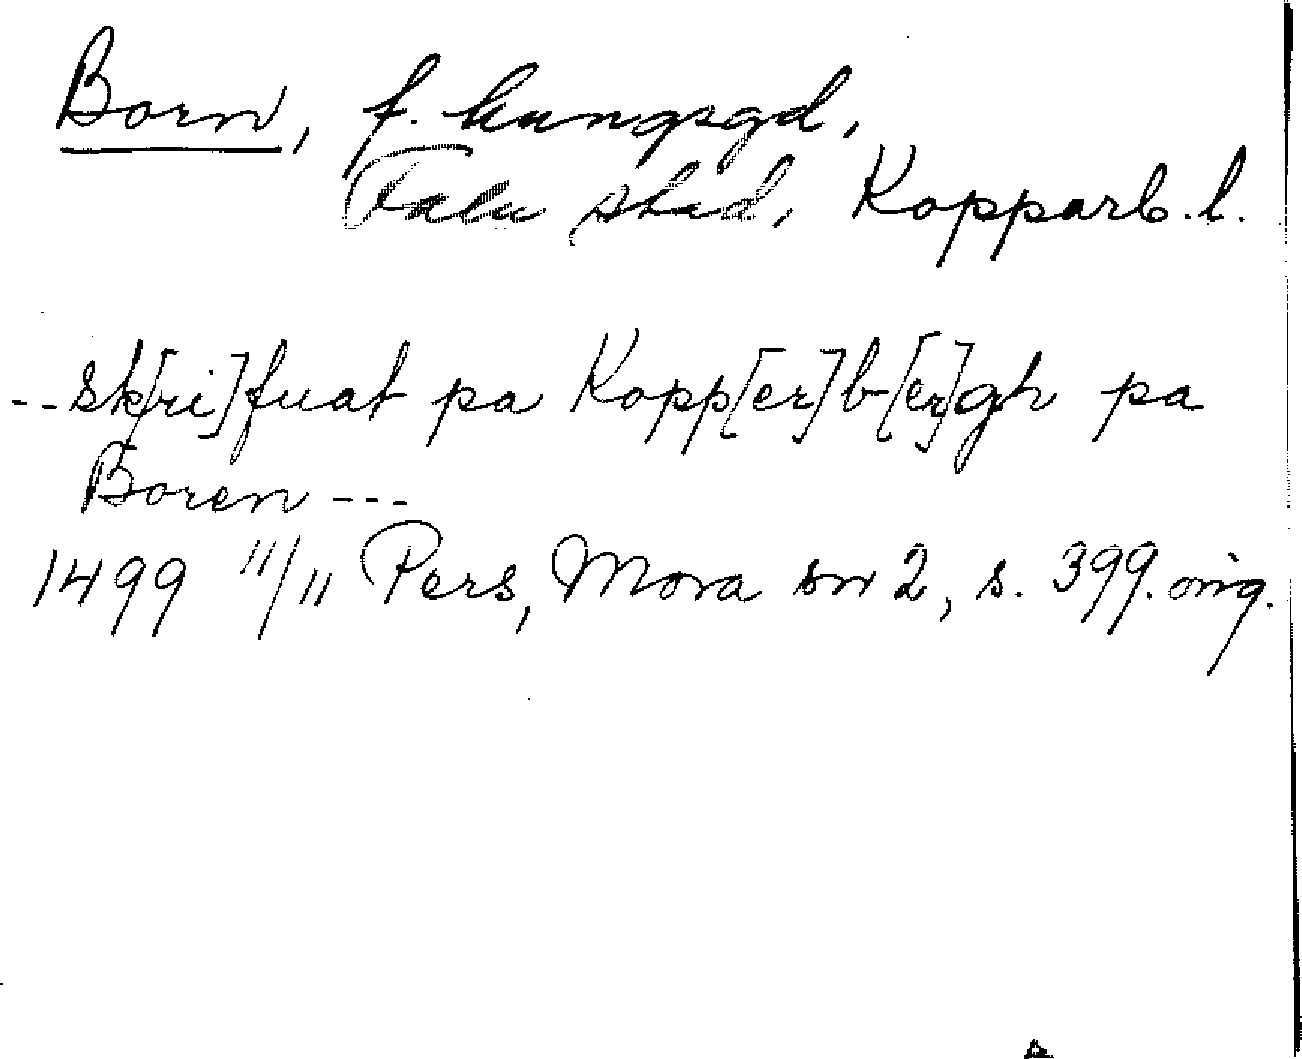 Born, f. kungsgd,
Falu stad, Kopparb. l.
-- sk[ri]fuat pa Kopp[er]b[er]gh pa
Boren ---
1499 11/11 Pers, Mora sn 2, s. 399. orig.